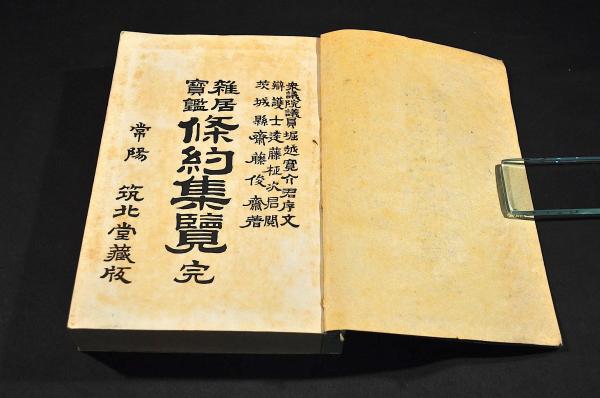 衆議院議員堀越寛介君序文
辯護士遠藤極次君閲
茨城縣齋藤俊齋著
雜居
寶鑑
條約集覽 完
常陽 筑北堂藏版